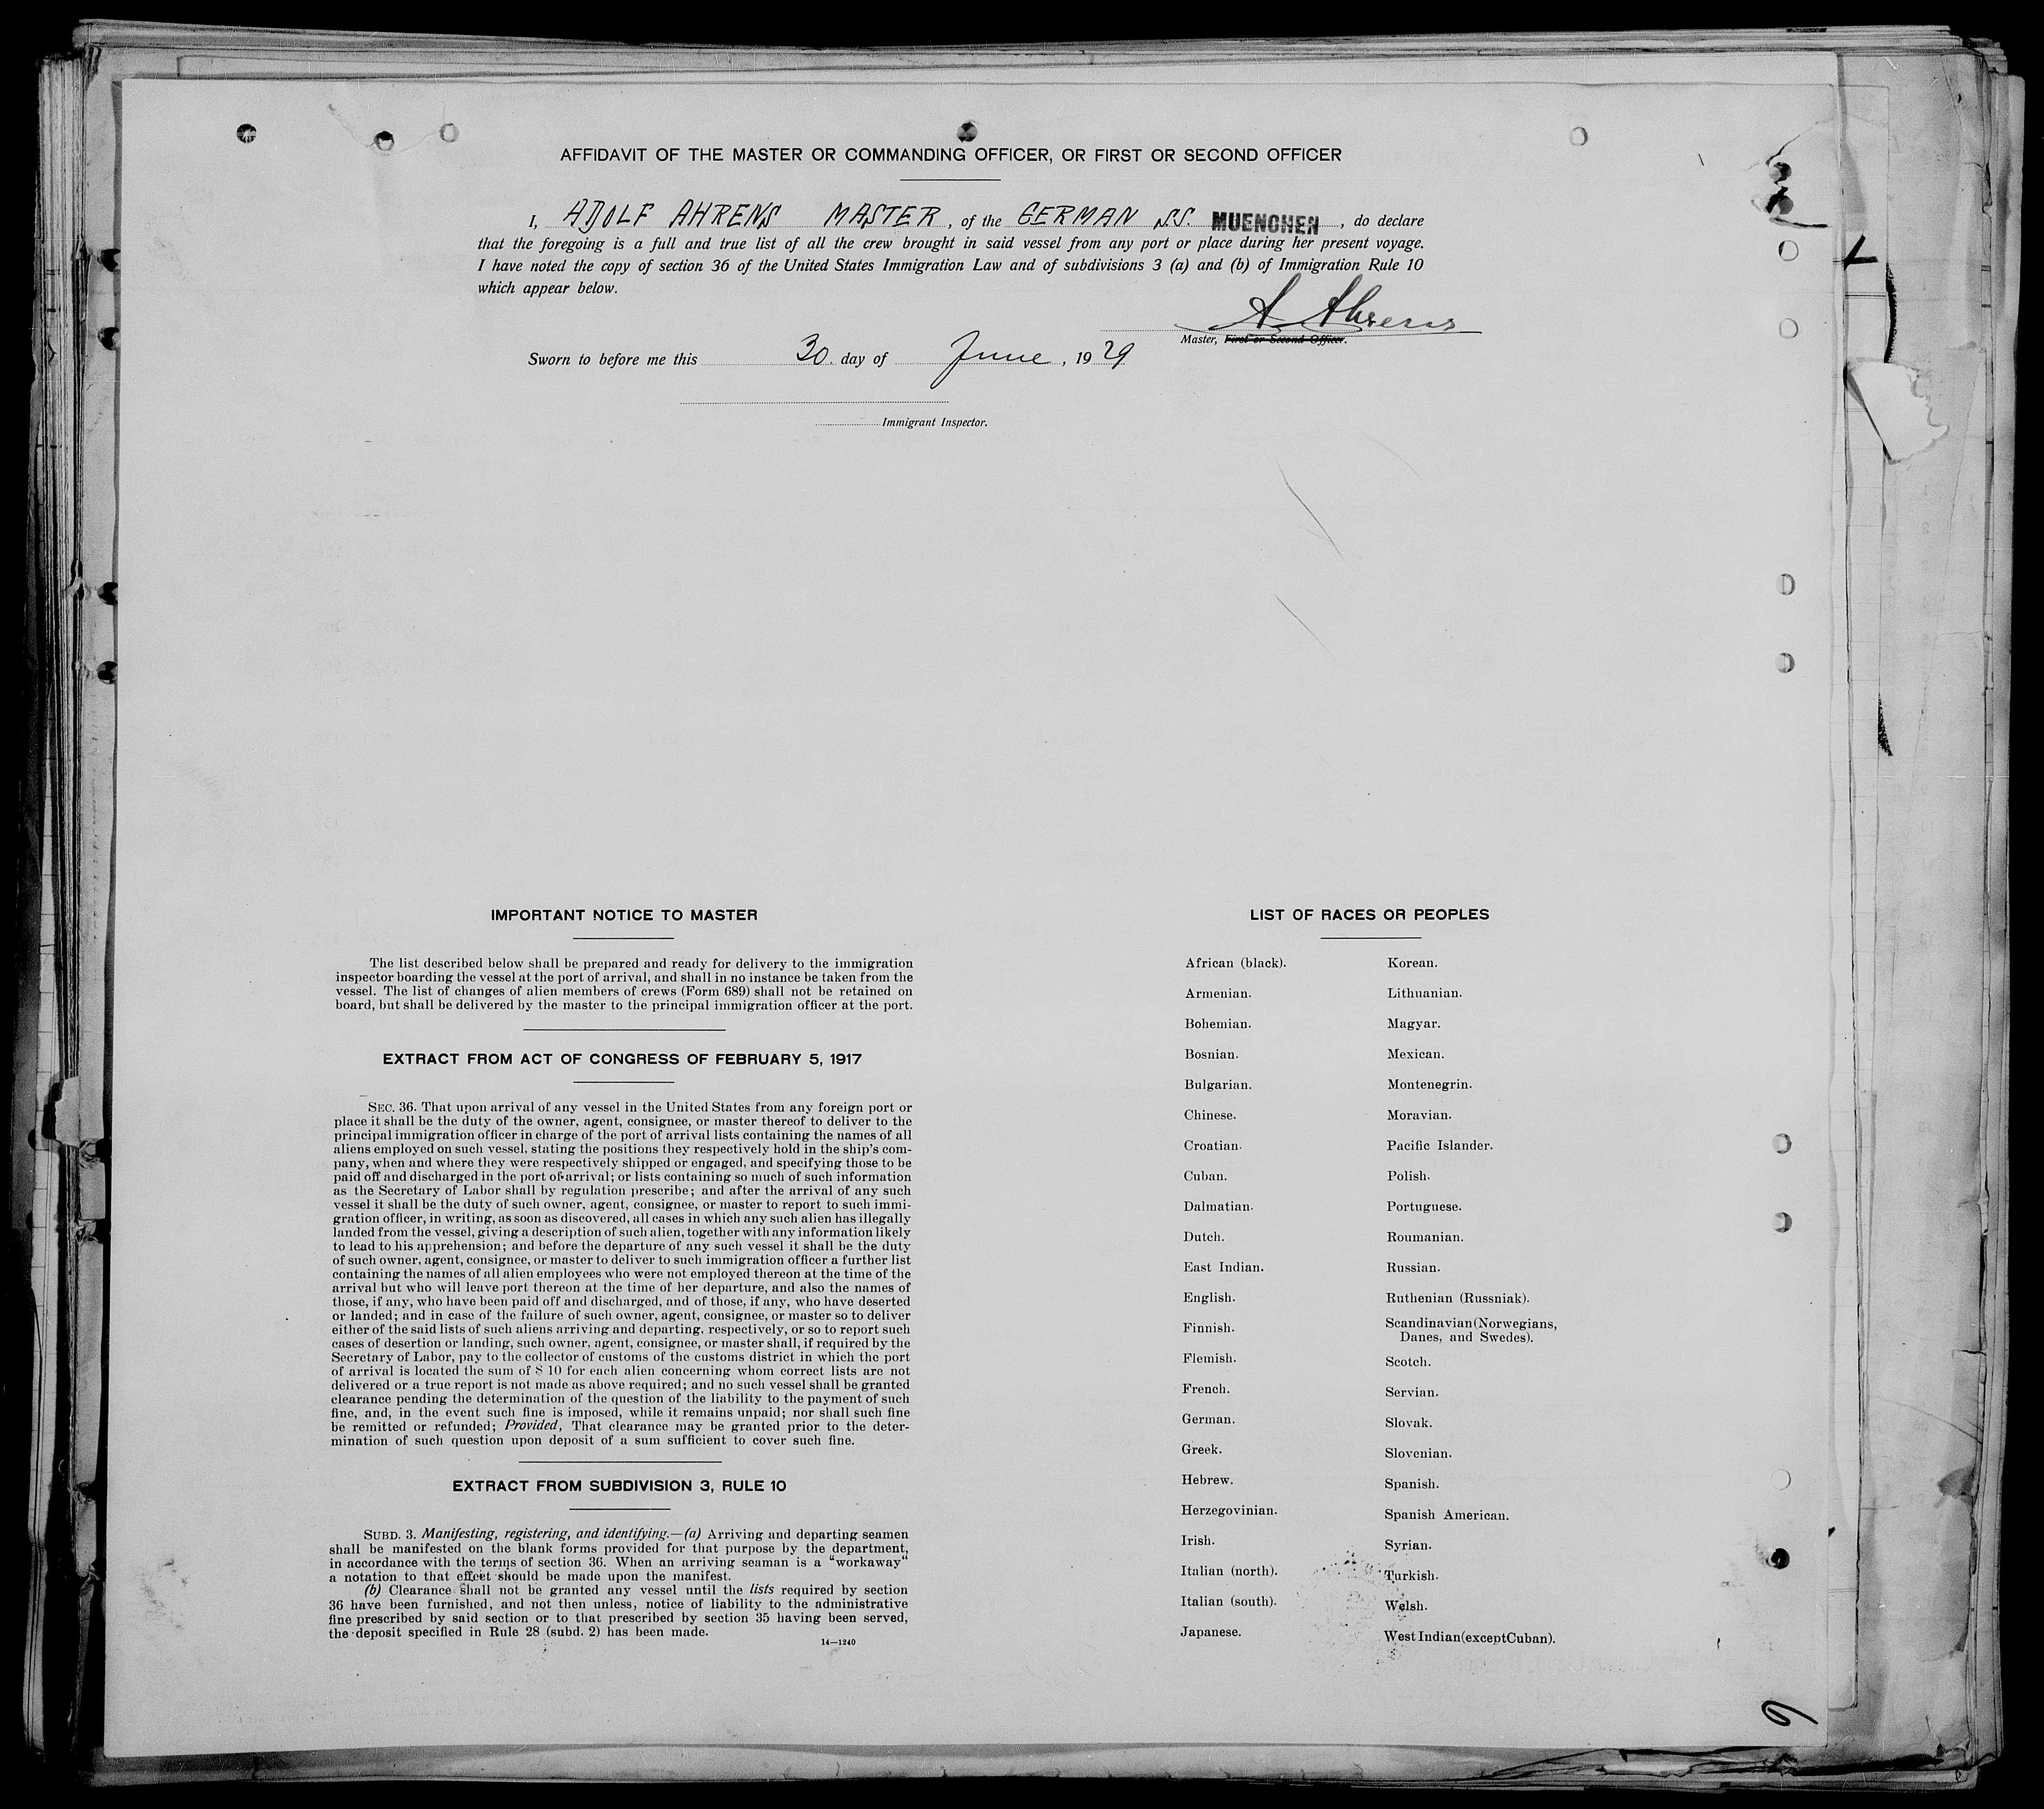 AFFIDAVIT OF THE MASTER OR COMMANDING OFFICER, OR FIRST OR SECOND OFFICER
I, ADOLF AHRENS MASTER, of the GERMAN S.S. MUENCHEN, do declare
that the foregoing is a full and true list of all the crew brought in said vessel from any port or place during her present voyage.
I have noted the copy of section 36 of the United States Immigration Law and of subdivisions 3 (a) and (b) of Immigration Rule 10
which appear below.
A. Ahrens
Master, First or Second Officer.
Sworn to before me this 30. day of June, 1929
Immigrant Inspector.
IMPORTANT NOTICE TO MASTER
The list described below shall be prepared and ready for delivery to the immigration
inspector boarding the vessel at the port of arrival, and shall in no instance be taken from the
vessel. The list of changes of alien members of crews (Form 689) shall not be retained on
board, but shall be delivered by the master to the principal immigration officer at the port.
EXTRACT FROM ACT OF CONGRESS OF FEBRUARY 5, 1917
SEC. 36. That upon arrival of any vessel in the United States from any foreign port or
place it shall be the duty of the owner, agent, consignee, or master thereof to deliver to the
principal immigration officer in charge of the port of arrival lists containing the names of all
aliens employed on such vessel, stating the positions they respectively hold in the ship's com-
pany, when and where they were respectively shipped or engaged, and specifying those to be
paid off and discharged in the port of arrival; or lists containing so much of such information
as the Secretary of Labor shall by regulation prescribe; and after the arrival of any such
vessel it shall be the duty of such owner, agent, consignee, or master to report to such immi-
gration officer, in writing, as soon as discovered, all cases in which any such alien has illegally
landed from the vessel, giving a description of such alien, together with any information likely
to lead to his apprehension; and before the departure of any such vessel it shall be the duty
of such owner, agent, consignee, or master to deliver to such immigration officer a further list
containing the names of all alien employees who were not employed thereon at the time of the
arrival but who will leave port thereon at the time of her departure, and also the names of
those, if any, who have been paid off and discharged, and of those, if any, who have deserted
or landed; and in case of the failure of such owner, agent, consignee, or master so to deliver
either of the said lists of such aliens arriving and departing, respectively, or so to report such
cases of desertion or landing, such owner, agent, consignee, or master shall, if required by the
Secretary of Labor, pay to the collector of customs of the customs district in which the port
of arrival is located the sum of $ 10 for each alien concerning whom correct lists are not
delivered or a true report is not made as above required; and no such vessel shall be granted
clearance pending the determination of the question of the liability to the payment of such
fine, and, in the event such fine is imposed, while it remains unpaid; nor shall such fine
be remitted or refunded; Provided, That clearance may be granted prior to the deter-
mination of such question upon deposit of a sum sufficient to cover such fine.
EXTRACT FROM SUBDIVISION 3, RULE 10
SUBD. 3. Manifesting, registering, and identifying.—(a) Arriving and departing seamen
shall be manifested on the blank forms provided for that purpose by the department,
in accordance with the terms of section 36. When an arriving seaman is a "workaway"
a notation to that effect should be made upon the manifest.
(b) Clearance shall not be granted any vessel until the lists required by section
36 have been furnished, and not then unless, notice of liability to the administrative
fine prescribed by said section or to that prescribed by section 35 having been served,
the deposit specified in Rule 28 (subd. 2) has been made.
14—1240
LIST OF RACES OR PEOPLES
African (black).
Armenian.
Bohemian.
Bosnian.
Bulgarian.
Chinese.
Croatian.
Cuban.
Dalmatian.
Dutch.
East Indian.
English.
Finnish.
Flemish.
French.
German.
Greek.
Hebrew.
Herzegovinian.
Irish.
Italian (north).
Italian (south).
Japanese.
Korean.
Lithuanian.
Magyar.
Mexican.
Montenegrin.
Moravian.
Pacific Islander.
Polish.
Portuguese.
Roumanian.
Russian.
Ruthenian (Russniak).
Scandinavian (Norwegians,
Danes, and Swedes).
Scotch.
Servian.
Slovak.
Slovenian.
Spanish.
Spanish American.
Syrian.
Turkish.
Welsh.
West Indian (except Cuban).